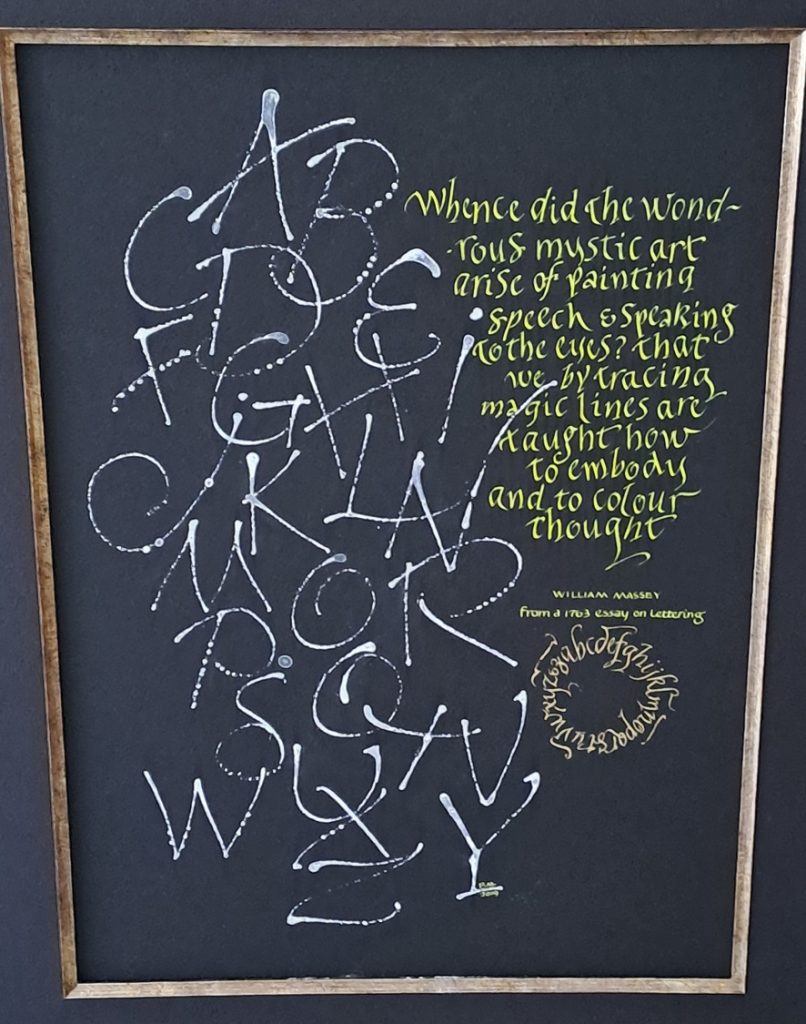 A B
C D E
F G H I
J K L N
M O R
P Q T V
S U X
W Z Y
Whence did the wond-
-rous mystic art
arise of painting
speech & speaking
to the eyes? that
we by tracing
magic lines are
taught how
to embody
and to colour
thought
WILLIAM MASSEY
From a 1763 essay on Lettering
abcdefghijklmnopqrstuvwxyz